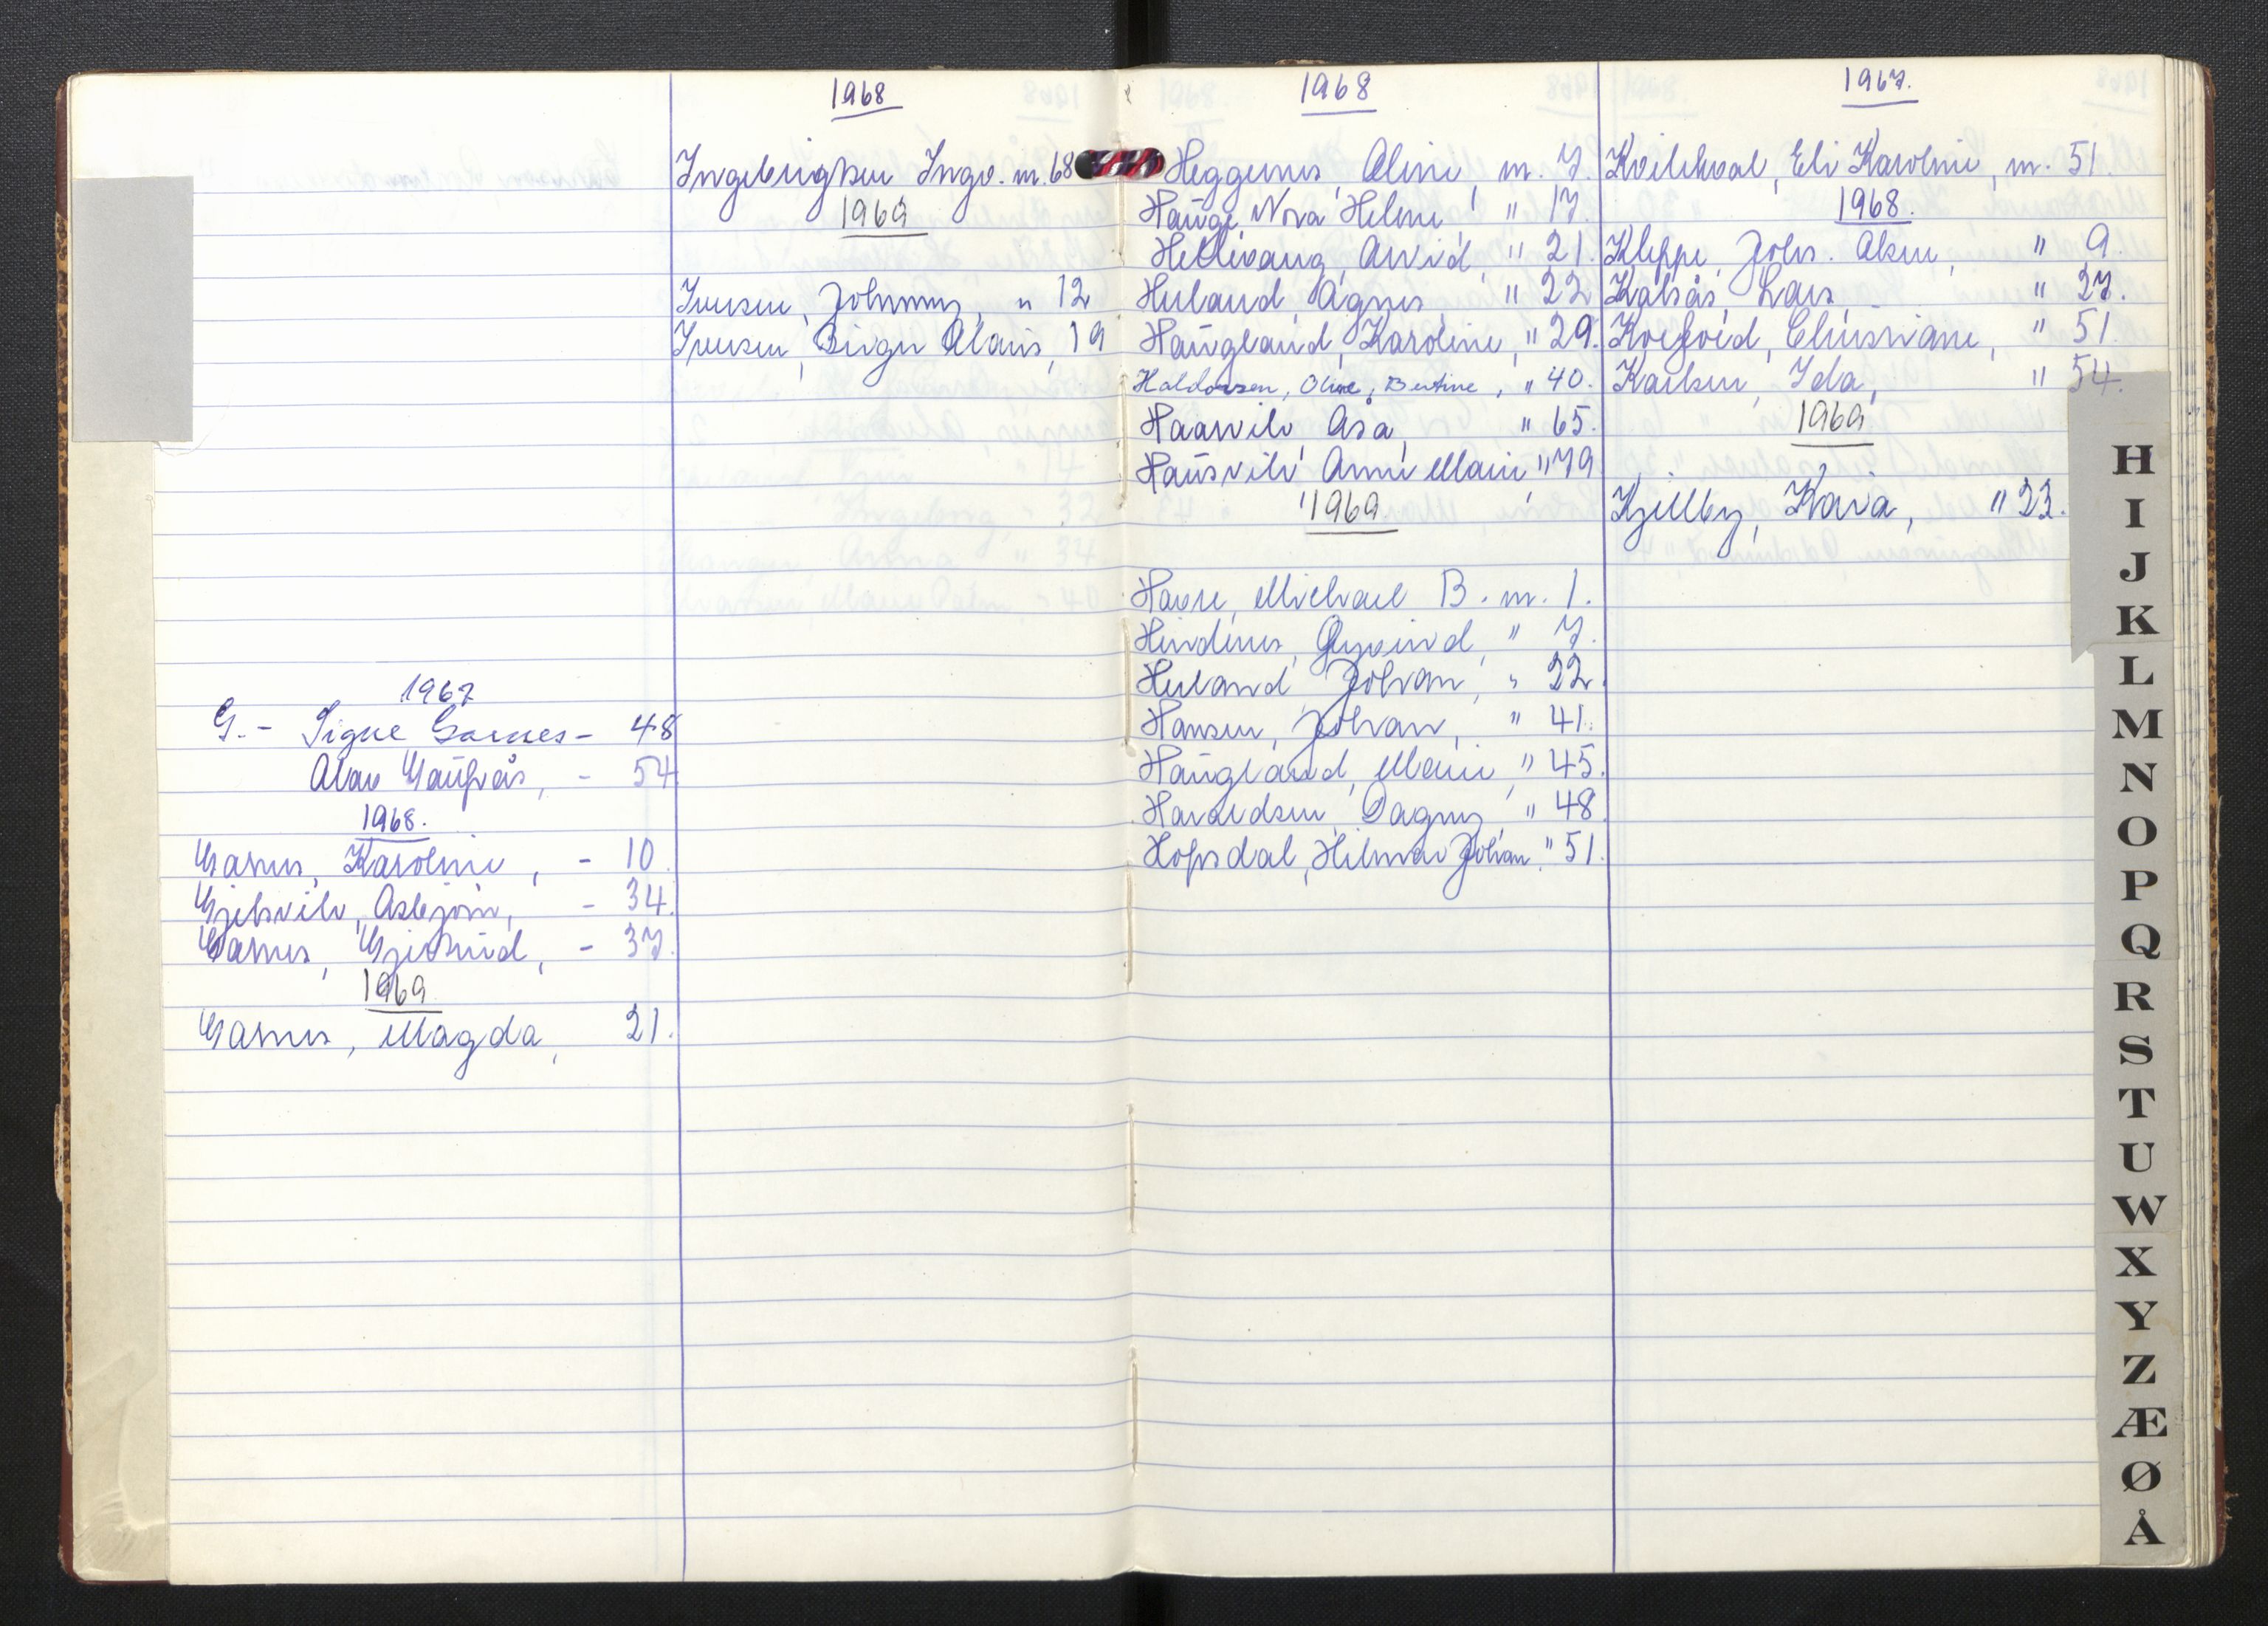 1967
G. - Signe Garnes - 48
Olav Gaupås, - 54
1968.
Garnes, Karoline, - 10
Gjelsvik, Asbjørn, - 34.
Garnes, Gjertrud, - 37.
1969
Garnes, Magda, 21.
1968
Ingebrigtsen Ingv. m. 68
1969
Iversen, Johnny, " 12
Iversen, Birger Olaus, 19
1968
Heggenes, Oline, m. 7.
Hauge, Nora Helene, " 17.
Hellesvang, Arvid, " 21.
Heland, Agnes, " 22
Haugland, Karoline, " 29.
Haldorsen, Oline, Bertine, " 40.
Haarvik, Åsa, " 65.
Hausvik, Anne Marie, " 79
1969
Havre, Michael B. m. 1.
Hindenes, Øyvind, " 7.
Heland Johan, " 22.
Hansen, Johan, " 41.
Haugland, Marie, " 45.
Haraldsen, Dagny, " 48
Hopsdal, Hilmar Johan, " 51.
1967.
Eli Karoline, m. 51.
1968.
Kleppe, Johs. Aksen, " 9.
Kalsås, Lars " 27.
Christiane, " 51.
Karlsen, Ida, " 54.
1969
Kjellby, Kara, " 23.
H
I
J
K
L
M
N
O
P
Q
R
S
T
U
W
X
Y
Z
Æ
Ø
Å